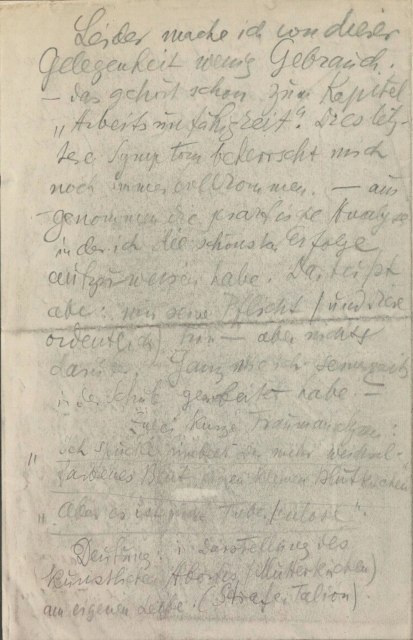 Leider mache ich von dieser
Gelegenheit wenig Gebrauch.
– das gehört schon zum Kapitel
„Arbeitsunfähigkeit“. Dies letz-
tere Symptom beherrscht mich
noch immer vollkommen. – aus
genommen die praktische Analyse
in der ich die schönsten Erfolge
aufzuweisen habe. Da ist
aber nur Pflicht (und die
ordentlich) – aber nichts
darüber. Ganz wie ich seinerzeit
in der Schule gearbeitet habe. –
Zwei kurze Traumanalysen:
„Ich spucke mehr
farbenes Blut, einen kleinen Blutkuchen
„Aber es ist nur Tuberkulose“.
Deutung: Darstellung des
künstlichen Abortes (Mutterkuchen)
am eigenen Leibe. (Strafe, Talion).